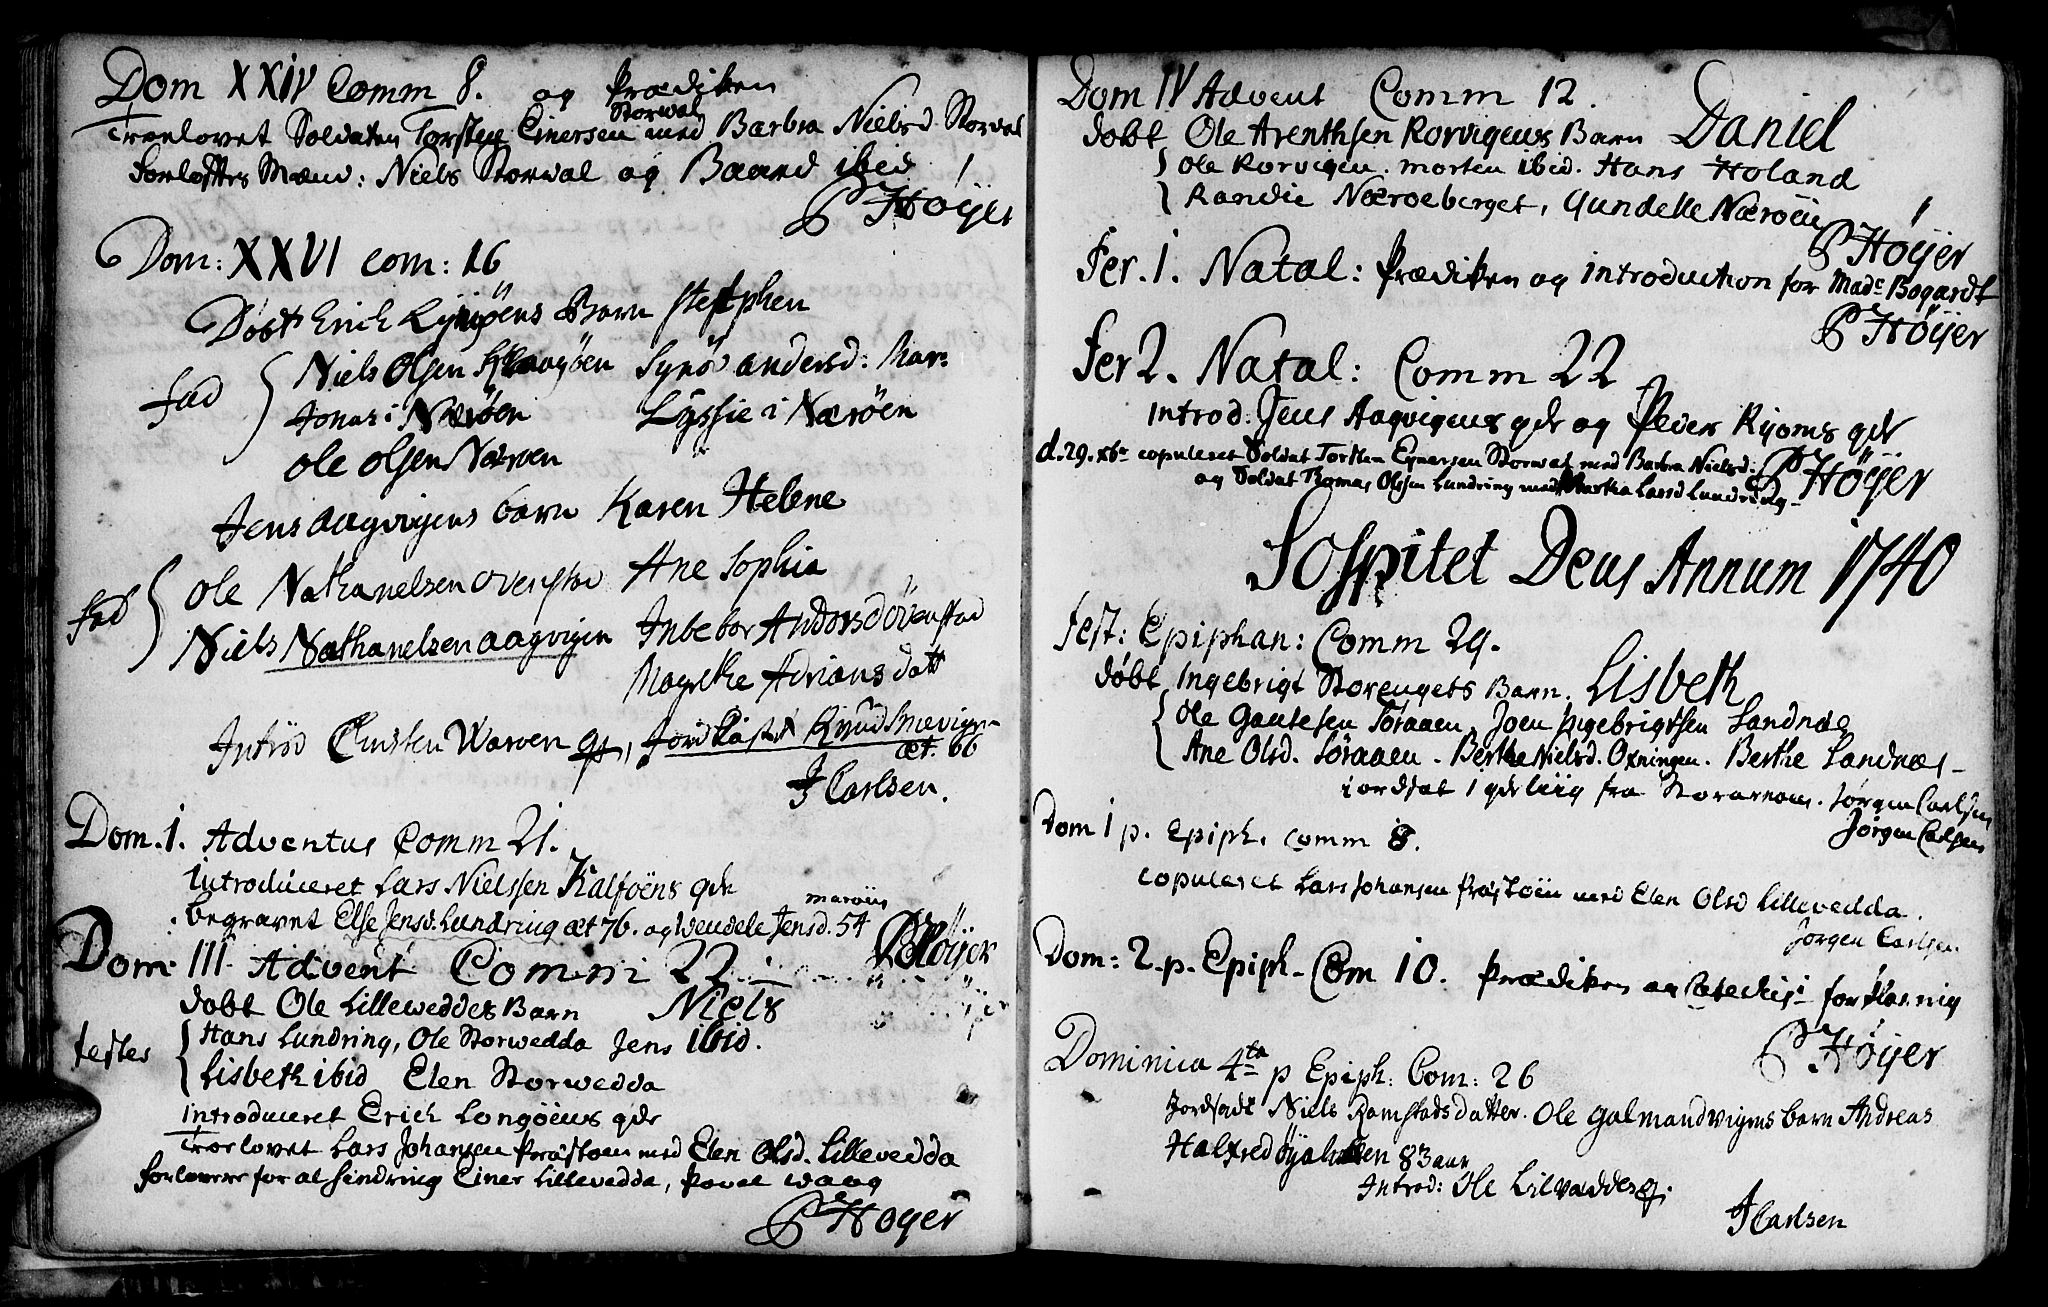 Dom XXIV Comm 8. og Prædiken
Troelovet Soldaten Torsten Einersen Storwal med Barbra Nielsd. Storval
Forløftes Mænd: Niels Storwal og Baard ibid
P Høyer
Dom: XXVI com: 16
Døbt Erich Lyngöens Barn Stephen
fad Niels Olsen Synö andersd: Mar:
Jonas i Næröen Lyssie i Næröen
Ole Olsen Næroen
Jens aagvigens barn Karen Helene
fad Ole Nathanelsen overstad Ane Sophia
Niels Nathanelsen aagvigen Inbebor Andersd överstad
Magrethe Adrians datt
Introd Waroen q, Jordkastet Knud Snevigen
æt. 66
J Carlsen.
Dom. 1. Adventus Comm 21.
Introduceret Lars Nielssen Kalföens qde
begravet Else Jensd. Lundring æt 76. og Wendele Jensd. maröen 54
P Høijer
Dom: III. Advent Comm: 22.
døbt Ole Lillewedder Barn Niels
testes Hans Lundring, Ole Storwedda Jens ibid.
Lisbeth ibid Elen Storwedda
Introduceret Erich Longöens qde
Troelovet Lars Johansen Pröstöen med Elen Olsd. Lillevedda
forlovere for al hindring Einer Lillevedda, Povel waag
P Høyer
Dom IV Advent Comm 12.
døbt Ole Arenthsen Rorvigens Barn Daniel
Ole Rorvigen. morten ibid. Hans Holand
Randie Næroeberget, Gundelle Næröen
P Høyer
Fer. 1. Natal: Prædiken og introduction for Made Bogardt
P Høyer
Fer 2. Natal: Comm 22
introd: Jens Aagvigens qde og Peder Ryoms qde
d. 29. xbr copuleret Soldat Torsten Eynersen Storwal med Barbra Nielsd:
og Soldat Thomas Olssen Lundring med Martha Larsd Lundring
P Høyer
Sospitet Deus Annum 1740
Fest: Epiphan: Comm 29.
døbt Ingebrigt Storengets Barn. Lisbeth
Ole Gautesen Söraaen, Joen Ingebrigtsen Sandnæs
Ane Olsd. Söraaen. Berthe Nielsd. Oxningen. Berthe Sandnæs
iordsat 1 qde liig fra . Jörgen Carlsen
Jörgen Carlsen
Dom 1 p. Epiph. comm 8.
copuleret Lars Johansen Pröstöen med Elen Olsd Lillevedda.
Jörgen Carlsen
Dom: 2. p. Epiph. Com 10. Prædiken og Catechis: forklaring
P Høyer
Dominica 4ta p Epiph: Com: 26
Jordsadt Niels Ramstads datter. Ole galmandvigens barn Andreas
Halfred 83 aar
Introd: Ole Lilvaddes q.
J Carlsen